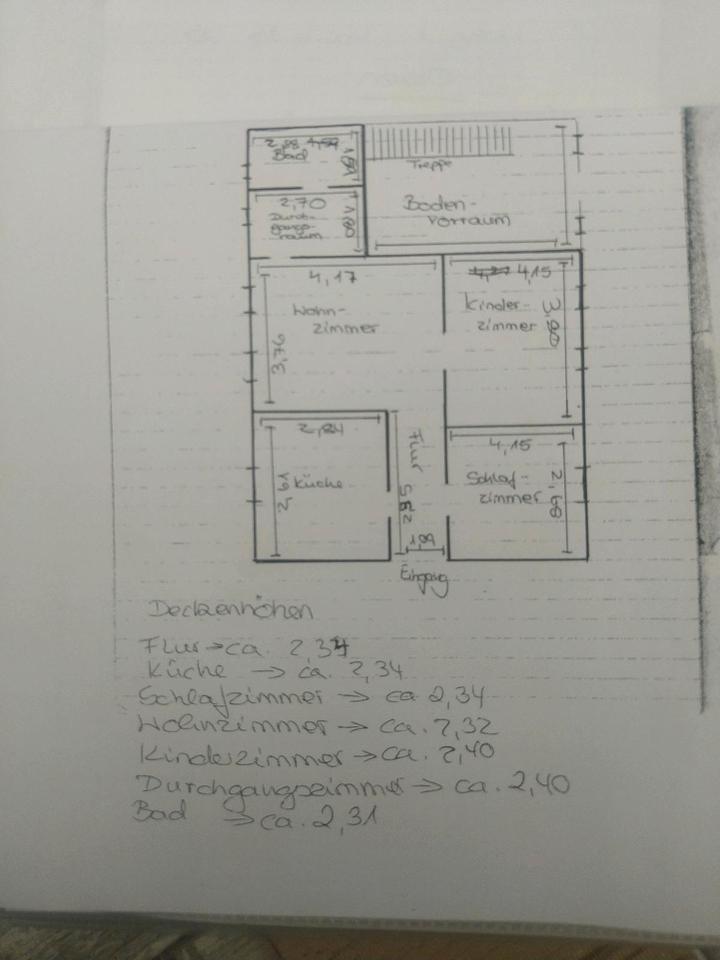 2,88
Bad
Treppe
2,70
Durch-
gangs-
raum
Boden-
vorraum
4,17
4,15
Wohn-
zimmer
Kinder-
zimmer
3,76
2,84
Flur
4,15
Küche
Schlaf-
zimmer
2,68
1,09
Eingang
Deckenhöhen
Flur → ca. 2,34
Küche → ca. 2,34
Schlafzimmer → ca 2,34
Wohnzimmer → ca. 2,32
Kinderzimmer → ca. 2,40
Durchgangszimmer → ca. 2,40
Bad → ca. 2,31